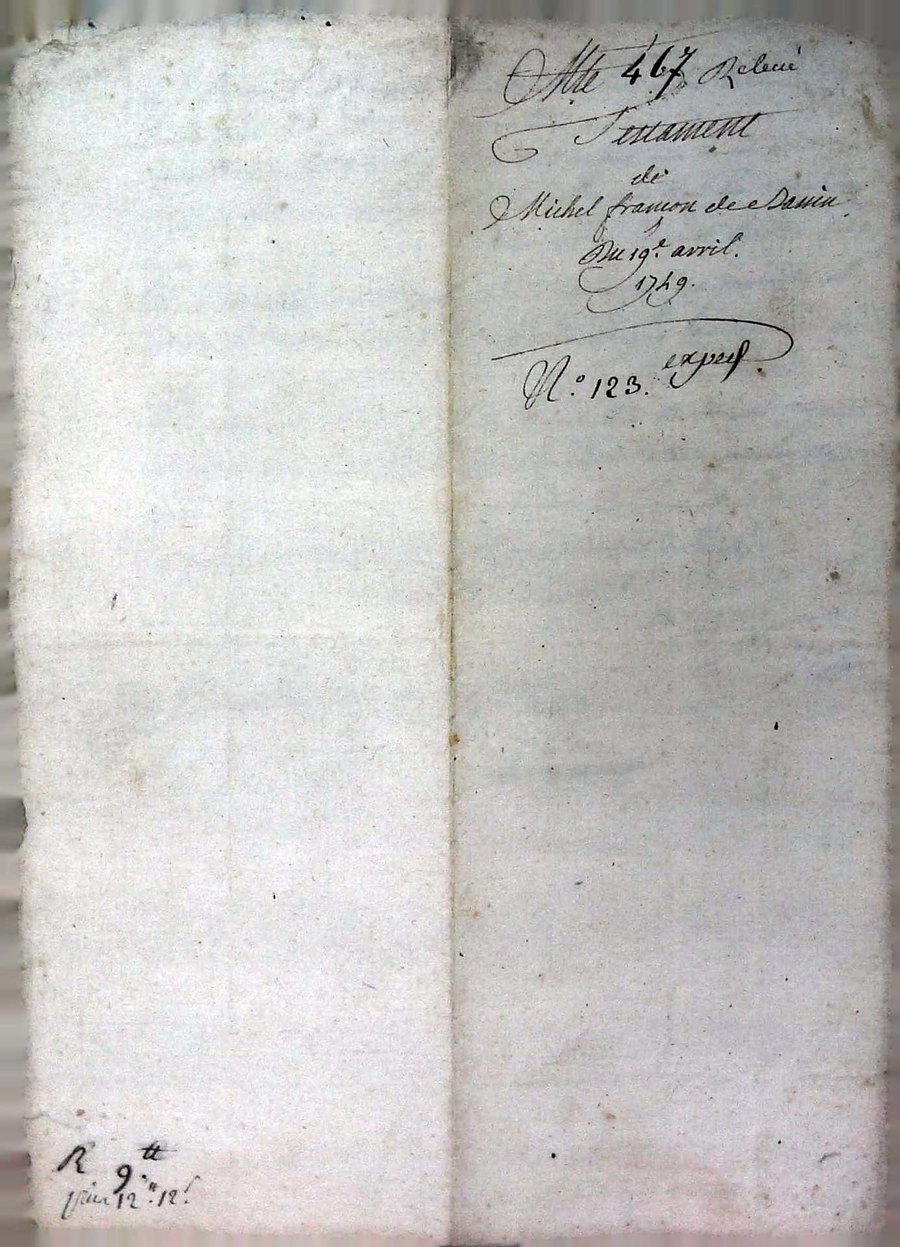 Cote 467 Relevé
Testament
de
Michel françon de
Du 19e. avril.
1749.
N.o 123. exped.
R 9.tt
12." 12.s